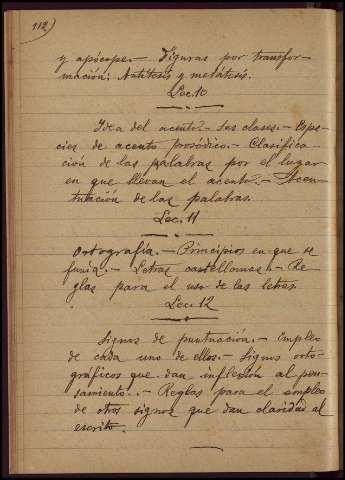 112)
y apócope.— Figuras por transfor-
mación: Antítesis y metátesis.
Lec. 10
Idea del acento.— Sus clases.— Espe-
cies de acento prosódico.— Clasifica-
ción de las palabras por el lugar
en que llevan el acento.— Acen-
tuación de las palabras.
Lec. 11
Ortografía.— Principios en que se
funda.— Letras castellanas.— Re-
glas para el uso de las letras
Lec. 12
Signos de puntuación.— Empleo
de cada uno de ellos.— Signos orto-
gráficos que dan inflexión al pen-
samiento.— Reglas para el empleo
de otros signos que dan claridad al
escrito.